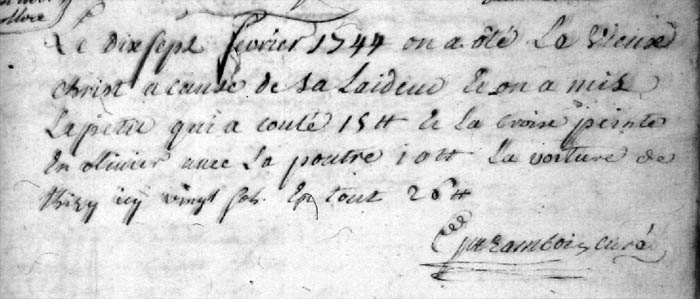 Le dix sept fevrier 1744 on a ôté Le vieux
christ a cause de sa Laideur & on a mis
Le petit qui a couté 15 ₶ & La croix peinte
En olivier avec La poutre 10 ₶ La voiture de
thizy icy vingt sols. En tout 26 ₶
curé